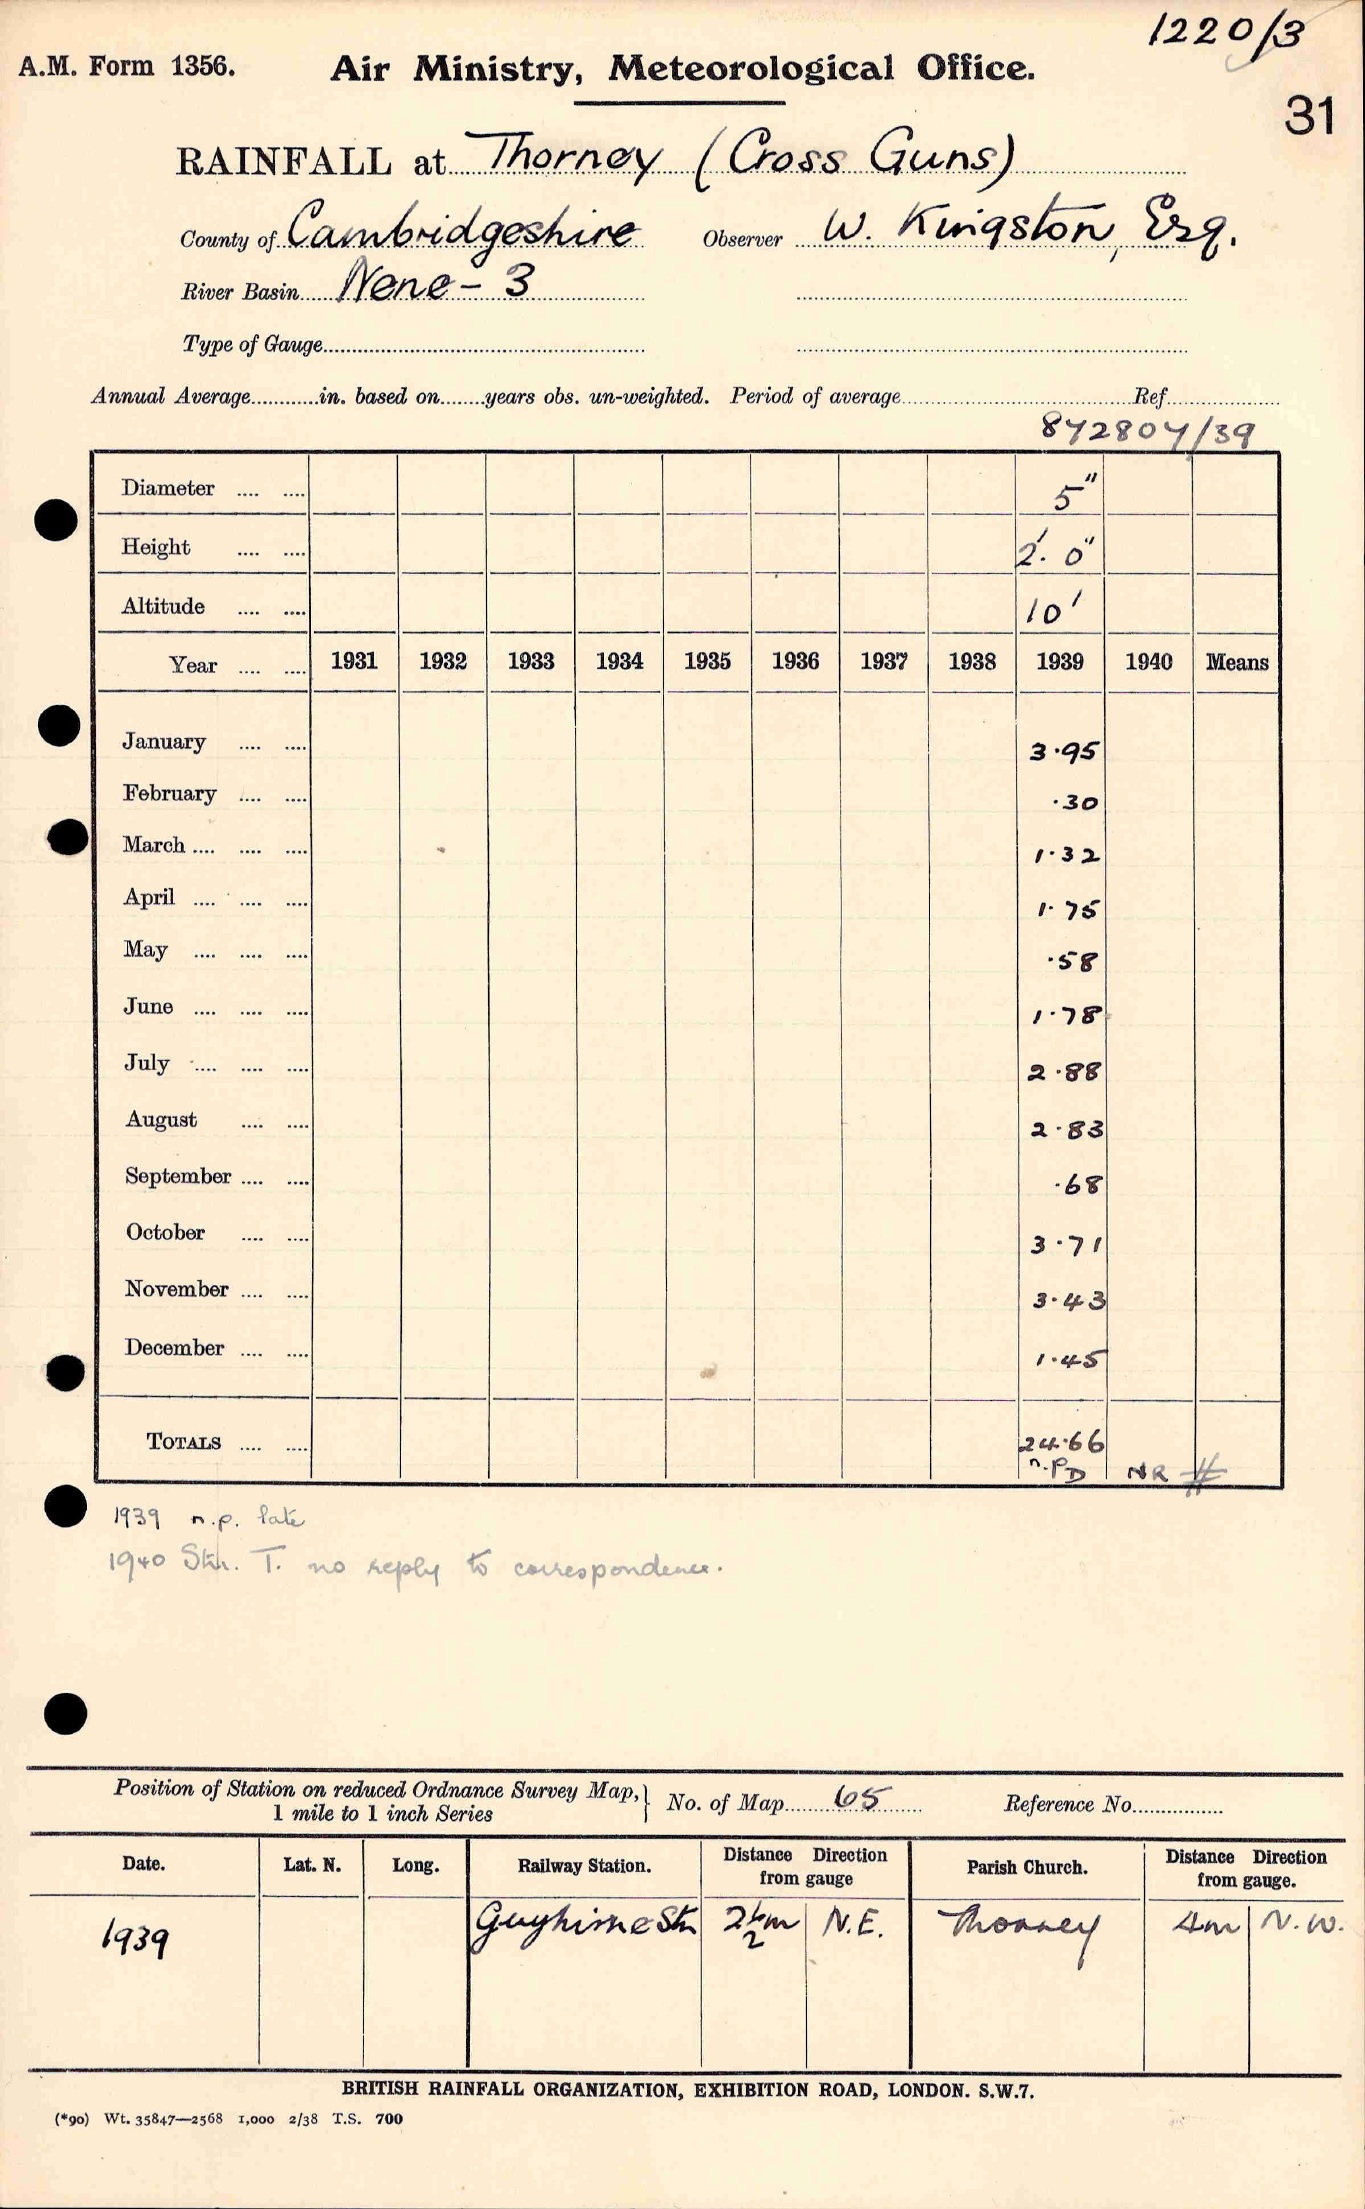 1220/3
A.M. Form 1356. Air Ministry, Meteorological Office.
31
RAINFALL at Thorney (Cross Guns)
County of Cambridgeshire Observer W. Kingston, Esq.
River Basin Nene - 3
Type of Gauge
Annual Average in. based on years obs. un-weighted. Period of average Ref
872807/39
Diameter 5"
Height 2'. 0"
Altitude 10'
Year 1931 1932 1933 1934 1935 1936 1937 1938 1939 1940 Means
January 3.95
February .30
March 1.32
April 1.75
May .58
June 1.78
July 2.88
August 2.83
September .68
October 3.71
November 3.43
December 1.45
TOTALS 24.66
n.p. D NR #
1939 n.p. late
1940 Stn. T. no reply to correspondence.
Position of Station on reduced Ordnance Survey Map,
1 mile to 1 inch Series } No. of Map 65 Reference No.
Date. Lat. N. Long. Railway Station. Distance Direction from gauge Parish Church. Distance Direction from gauge.
1939 Guyhirne Stn 2½m N.E. Thorney 4m N.W.
BRITISH RAINFALL ORGANIZATION, EXHIBITION ROAD, LONDON. S.W.7.
(*90) Wt. 35847—2568 1,000 2/38 T.S. 700